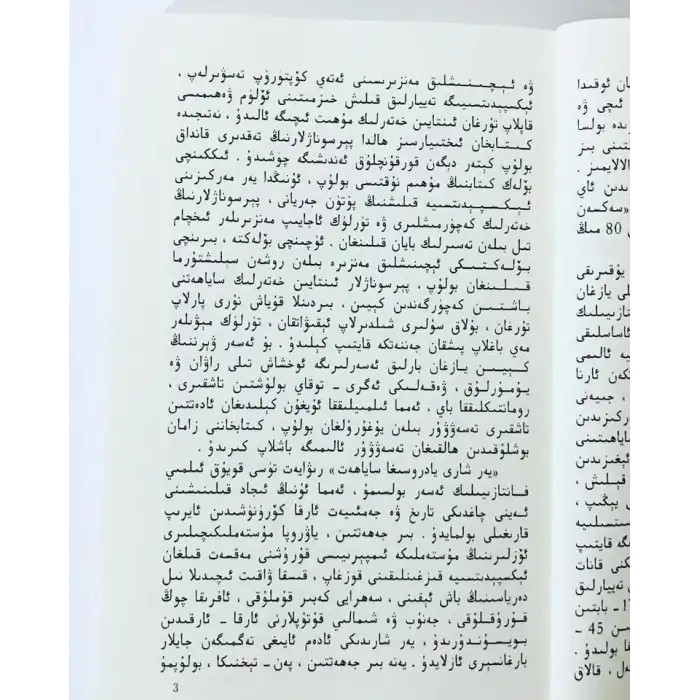 ۋە ئېچىنىشلىق مەنزىرىسىنى ئەتەي كۆپتۈرۈپ تەسۋىرلەپ،
ئېكسپېدىتسىيىگە تەييارلىق قىلىش خىزمىتىنى ئۆلۈم ۋەھىمىسى
قاپلاپ تۇرغان ئىنتايىن خەتەرلىك مۇھىت ئىچىگە ئالىدۇ، نەتىجىدە
كىتابخان ئىختىيارسىز ھالدا پېرسوناژلارنىڭ تەقدىرى قانداق
بولۇپ كېتەر دېگەن قورقۇنچلۇق ئەندىشىگە چۈشىدۇ. ئىككىنچى
بۆلەك كىتابنىڭ مۇھىم نۇقتىسى بولۇپ، ئۇنىڭدا يەر مەركىزىنى
ئېكسپېدىتسىيە قىلىشنىڭ پۈتۈن جەريانى، پېرسوناژلارنىڭ
خەتەرلىك كەچۈرمىشلىرى ۋە تۈرلۈك ئاجايىپ مەنزىرىلەر ئىخچام
تىل بىلەن تەسىرلىك بايان قىلىنغان. ئۈچىنچى بۆلەكتە، بىرىنچى
بۆلەكتىكى ئېچىنىشلىق مەنزىرە بىلەن روشەن سېلىشتۇرما
قىلىنغان بولۇپ، پېرسوناژلار ئىنتايىن خەتەرلىك ساياھەتنى
باشتىن كەچۈرگەندىن كېيىن، بىردىنلا قۇياش نۇرى پارلاپ
تۇرغان، بۇلاق سۇلىرى شىلدىرلاپ ئېقىۋاتقان، تۈرلۈك مېۋىلەر
مەي باغلاپ پىشقان جەننەتكە قايتىپ كېلىدۇ. بۇ ئەسەر ۋېرننىڭ
كېيىن يازغان بارلىق ئەسەرلىرىگە ئوخشاش تىلى راۋان ۋە
يۇمۇرلۇق، ۋەقەلىكى ئەگرى - توقاي بولۇشتىن تاشقىرى،
رومانتىكلىققا باي، ئەمما ئىلمىيلىققا ئۇيغۇن كېلىدىغان ئادەتتىن
تاشقىرى تەسەۋۋۇر بىلەن يۇغۇرۇلغان بولۇپ، كىتابخاننى زامان
بوشلۇقىدىن ھالقىغان تەسەۋۋۇر ئالىمىگە باشلاپ كىرىدۇ.
«يەر شارى يادروسىغا ساياھەت» رىۋايەت تۈسى قويۇق ئىلمىي
فانتازىيىلىك ئەسەر بولسىمۇ، ئەمما ئۇنىڭ ئىجاد قىلىنىشىنى
ئەينى چاغدىكى تارىخ ۋە جەمئىيەت ئارقا كۆرۈنۈشىدىن ئايرىپ
قارىغىلى بولمايدۇ. بىر جەھەتتىن، ياۋروپا مۇستەملىكىچىلىرى
ئۆزلىرىنىڭ مۇستەملىكە ئىمپېرىيىسى قۇرۇشنى مەقسەت قىلغان
ئېكسپېدىتسىيە قىزغىنلىقىنى قوزغاپ، قىسقا ۋاقىت ئىچىدىلا نىل
دەرياسىنىڭ باش ئېقىنى، سەھرايى كەبىر قۇملۇقى، ئافرىقا چوڭ
قۇرۇقلۇقى، جەنۇب ۋە شىمالىي قۇتۇپلارنى ئارقا - ئارقىدىن
بويسۇندۇرىدۇ، يەر شارىدىكى ئادەم ئايىغى تەگمىگەن جايلار
بارغانسېرى ئازلايدۇ. يەنە بىر جەھەتتىن، پەن - تېخنىكا، بولۇپمۇ
3
ان ئوقىدا
ئىچى ۋە
ىرىدە بولسا
ىتىنى بىز
الالايمىز.
ىدىن ئاي
«سەكسەن
80 مىڭ
يۇقىرىقى
لى يازغان
تازىيىلىك
ئاساسلىقى
ىيە ئالىمى
ىكەن ئارنا
، جىيەنى
ركىزىدىن
ساياھىتىنى
ئېغىزىدىن
قېلىش،
يېڭىپ،
ىستىلىيە
ىگە قايتىپ
ىكنى قانات
تەييارلىق
1- بابتىن
ىن 45 -
قىلىدۇ.
ەل، قالاق